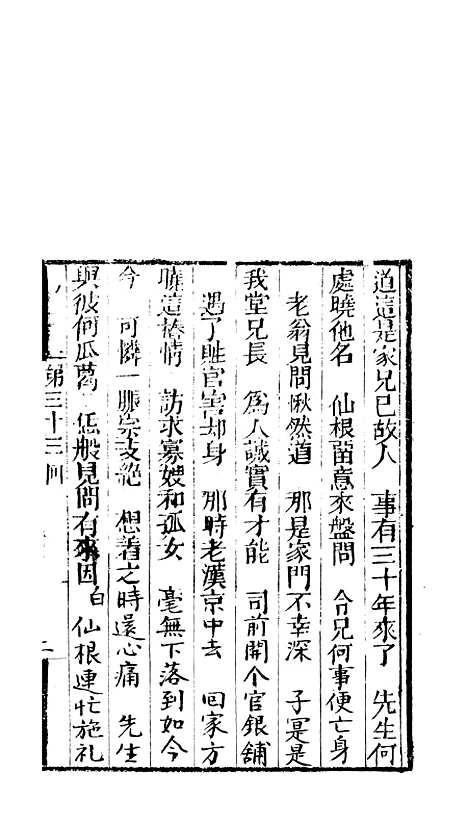 道這是家兄已故人　事有三十年來了　先生何
處曉他名　仙根留意來盤問　令兄何事便亡身
老翁見問愀然道　那是家門不幸深　子冥是
我堂兄長　為人誠實有才能　司前開个官銀舖
遇了賍官害却身　那時老漢京中去　回家方
曉這樁情　訪求寡嫂和孤女　毫無下落到如今
今　可憐一脈宗支絕　想着之時還心痛　先生
與彼何瓜葛　恁般見問有來因　白　仙根連忙施礼
第三十三回
二